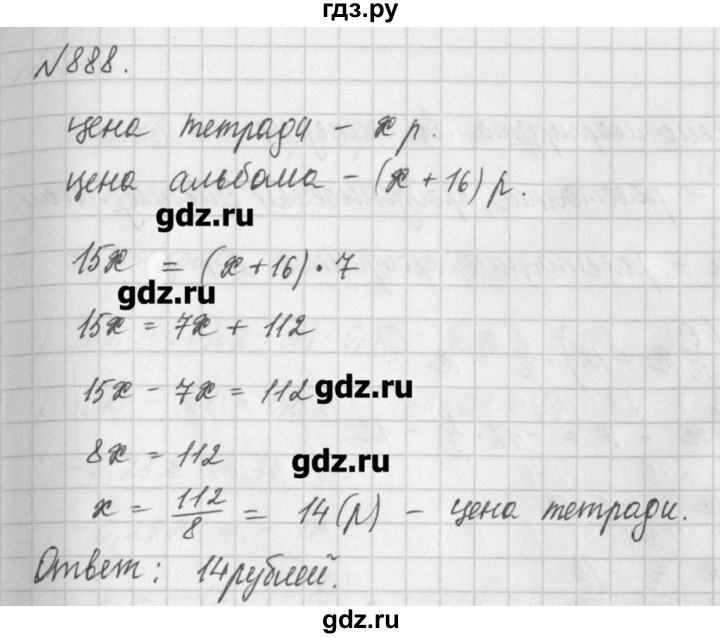 гдз.ру
№888.
цена тетради – x р.
цена альбома – (x + 16) р.
gdz.ru
15x = (x + 16) · 7
gdz.ru
15x = 7x + 112
15x - 7x = 112
gdz.ru
8x = 112
gdz.ru
x = 112/8 = 14 (р) – цена тетради.
Ответ: 14 рублей.
gdz.ru